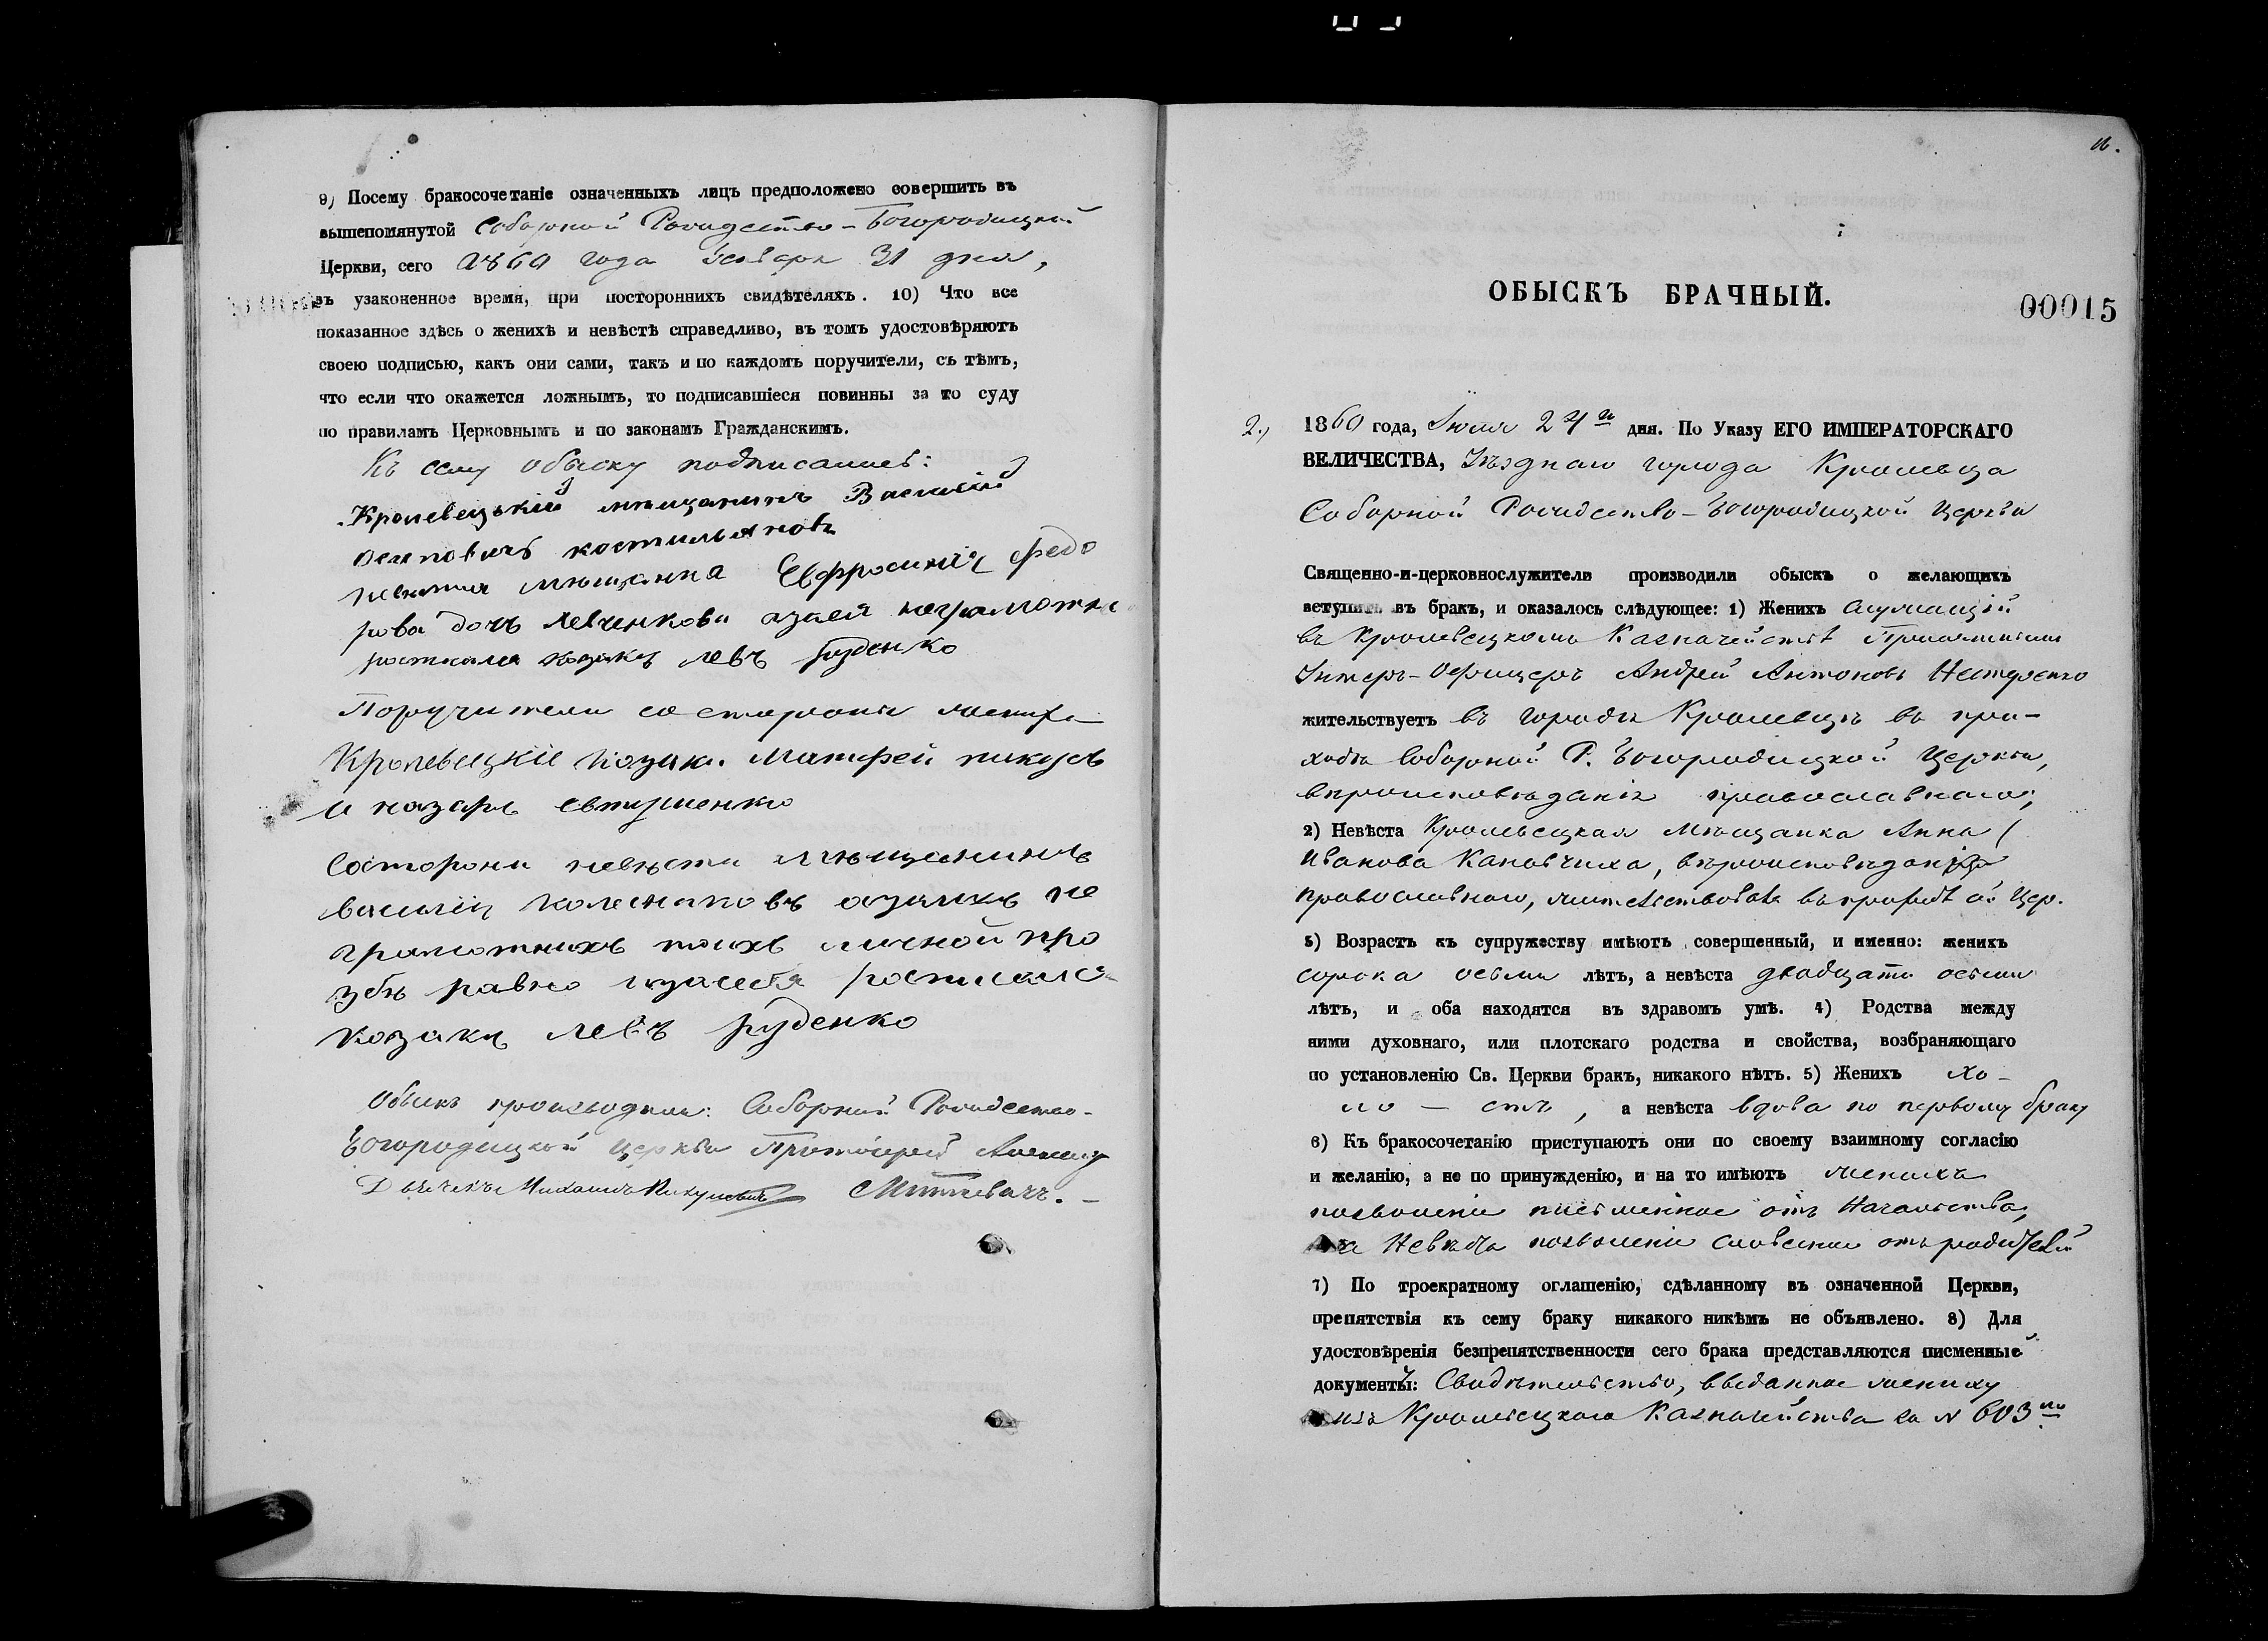 9) Посему бракосочетаніе означенныхъ лицъ предположено совершить въ
вышепомянутой Соборной Рождество-Богородицкой
Церкви, сего 1860 года Января 31 дня,
въ узаконенное время, при постороннихъ свидѣтеляхъ. 10) Что все
показанное здѣсь о женихѣ и невѣстѣ справедливо, въ томъ удостовѣряютъ
своею подписью, какъ они сами, такъ и по каждомъ поручители, съ тѣмъ,
что если что окажется ложнымъ, то подписавшіеся повинны за то суду
по правиламъ Церковнымъ и по законамъ Гражданскимъ.
Къ сему обыску подписались:
Кролевецкій мѣщанинъ Василій
Осиповичъ костильяновъ
невѣста мѣщанка Евфросинія федо
рова дочь Левченкова азаея неграмотна
росписался козакъ левъ руденко
Поручители со стороны жениха
Кролевецкіе козаки Матфей пикусъ
и назаръ евтушенко
Состороны невѣсти мѣщанинъ
василій колесниковъ азаихъ не
грамотнихъ поихъ личной про
збѣ равно изасебя росписался
козакъ левъ руденко
Обыскъ производили: Соборной Рождество-
Богородицкой церкви Протоіерей Алексий
Дьячекъ Михаилъ Микулевичъ Миткевичъ.
16.
ОБЫСКЪ БРАЧНЫЙ.
00015
2.) 1860 года, Іюля 24го дня. По Указу ЕГО ИМПЕРАТОРСКАГО
ВЕЛИЧЕСТВА, Уѣзднаго города Кролевца
Соборной Рождество-Богородицкой Церкви
Священно-и-церковнослужители производили обыскъ о желающихъ
вступить въ бракъ, и оказалось слѣдующее: 1) Женихъ служащій
въ Кролевецкомъ Казначействѣ Присяжнымъ
Унтеръ-Офицеръ Андрей Антоновъ Нестренко
жительствуетъ въ городѣ Кролевцѣ въ при-
ходѣ Соборной Р. Богородицкой Церкви,
вѣроисповѣданія православнаго;
2) Невѣста Кролевецкая Мѣщанка Анна
Иванова Каповчиха, вѣроисповѣданія
православнаго, жительствовала въ приходѣ ой Цер.
3) Возрастъ къ супружеству имѣютъ совершенный, и именно: женихъ
сорока осьми лѣтъ, а невѣста двадцати осьми
лѣтъ, и оба находятся въ здравомъ умѣ. 4) Родства между
ними духовнаго, или плотскаго родства и свойства, возбраняющаго
по установленію Св. Церкви бракъ, никакого нѣтъ. 5) Женихъ хо-
ло - стъ, а невѣста вдова по первому браку
6) Къ бракосочетанію приступаютъ они по своему взаимному согласію
и желанію, а не по принужденію, и на то имѣютъ женихъ
позволеніе письменное отъ Начальства,
а Невѣста позволеніе словесное отъ родителей
7) По троекратному оглашенію, сдѣланному въ означенной Церкви,
препятствія къ сему браку никакого никѣмъ не объявлено. 8) Для
удостовѣренія безпрепятственности сего брака представляются писменные
документы: Свидѣтельство, выданное жениху
изъ Кролевецкаго Казначейства за N 603мъ